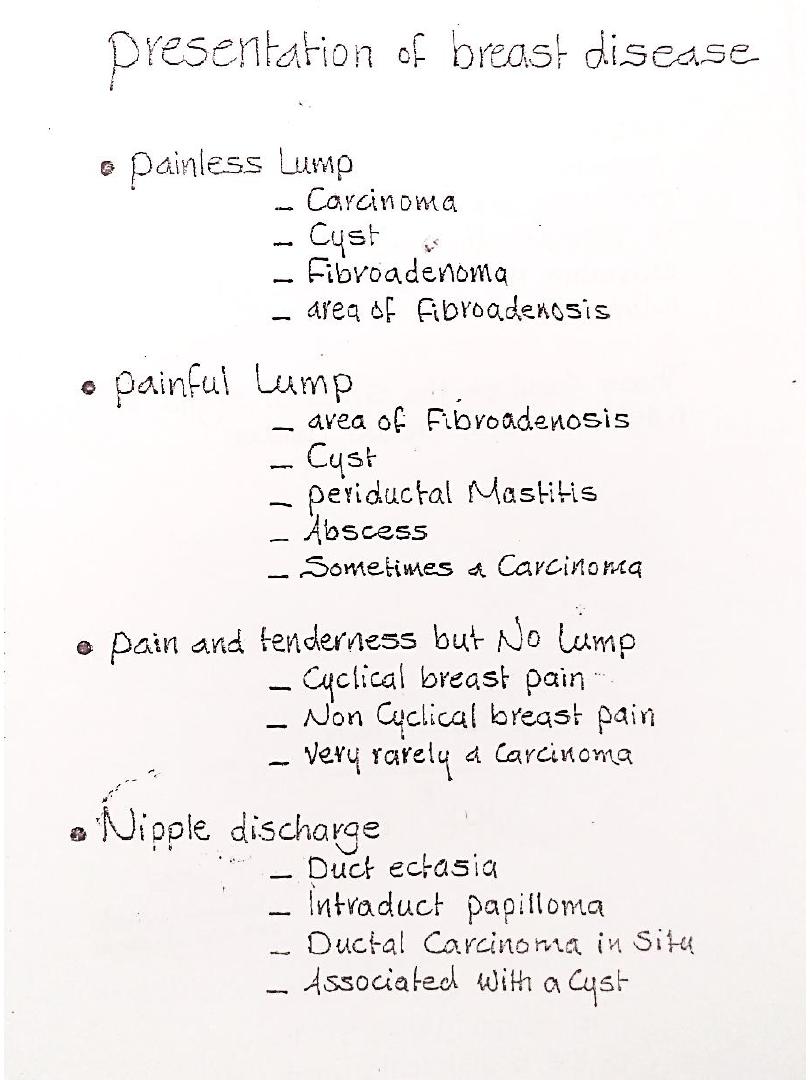 Presentation of breast disease
• Painless Lump
– Carcinoma
– Cyst
– Fibroadenoma
– area of Fibroadenosis
• Painful Lump
– area of Fibroadenosis
– Cyst
– periductal Mastitis
– Abscess
– Sometimes a Carcinoma
• Pain and tenderness but No Lump
– Cyclical breast pain
– Non Cyclical breast pain
– Very rarely a Carcinoma
• Nipple discharge
– Duct ectasia
– Intraduct papilloma
– Ductal Carcinoma in Situ
– Associated with a Cyst